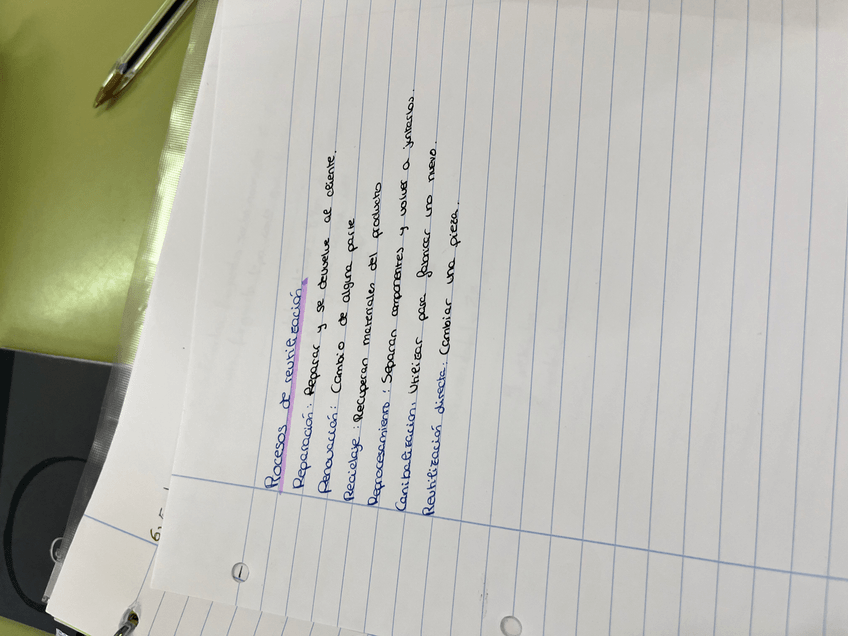 Procesos de reutilización
Reparación: Reparar y se devuelve al cliente.
Renovación: Cambio de alguna parte
Reciclaje: Recuperan materiales del producto
Reprocesamiento: Separan componentes y volver a juntarlos.
Canibalización: Utilizar para fabricar uno nuevo.
Reutilización directa: Cambiar una pieza.